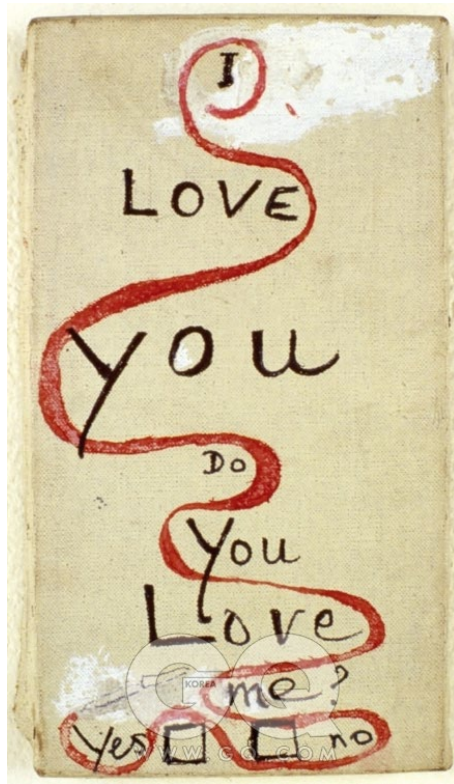 I
LOVE
you
Do
You
Love
me?
Yes □ □ no
GQ
KOREA
WWW.GQ.COM